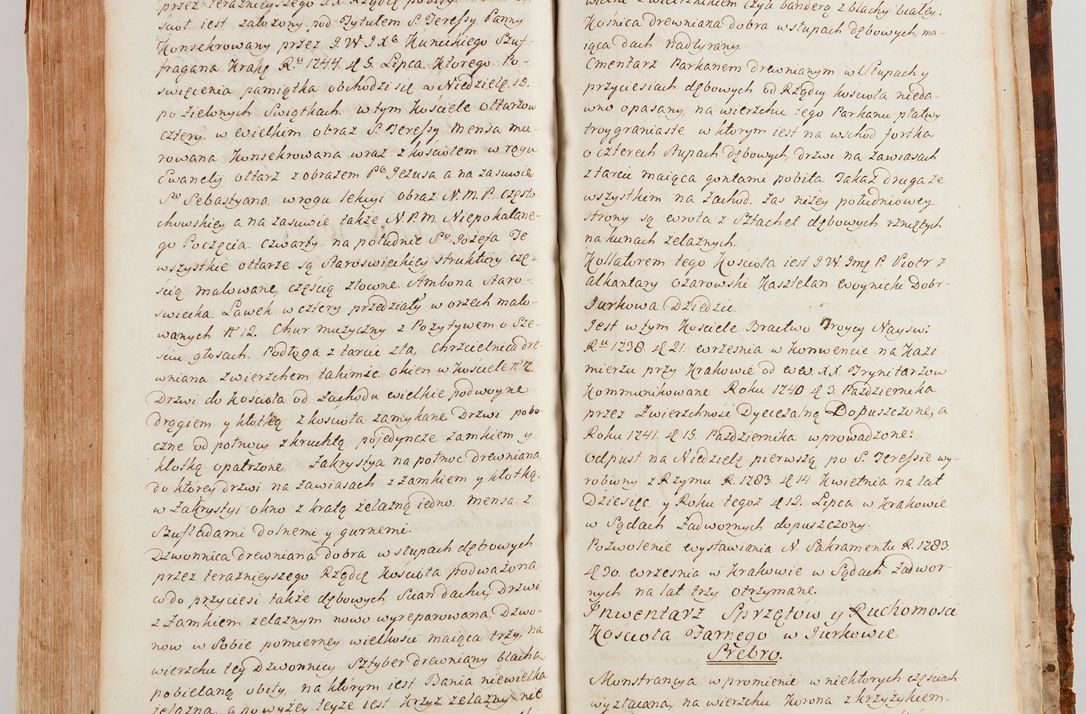 przez teraznieyszego JX. Rządcę pobity.
swot iest założony pod Tytułem S. Teressy Panny
Konsekrowany przez JW JXa Kunickiego Szuf-
fragana Krakg Ru 1744. d 5. Lipca. Ktorego Po-
swięcenia pamiątka obchodzi się w Niedzielę 10.
po zielonych Swiątkach. w tym Kosciele ołtarzow
cztery. w wielkim obraz S. Teressy Mensa mu-
rowana Konsekrowana wraz z kosciołem. w rogu
Ewaneliy ołtarz z obrazem Pa. Jezusa a na zasuwie
So Sebastyana. w rogu lekcyi obraz N. M. P. Często
chowskiey a na zasuwie także N. P. M. Niepokalane-
go Poczęcia. czwarty na południe So Jozefa Te
wszystkie ołtarze są Staroswieckiey struktury czę-
scią malowane, częscią złocone. Ambona Staro-
swiecka. Ławek w cztery przedziały w orzech malo-
wanych No 12. Chur muzyczny z Pozytywem o Sze-
sciu głosach. Podłoga z tarcic zła, Chrzcielnica dre
wniana z wierzchem takimże. okien w Kosciele No 7
Drzwi do Koscioła od Zachodu wielkie podwoyne
drągiem y kłotką z koscioła zamykane. Drzwi pobo
czne od połnocy z kruchtą poiedyncze zamkiem y
kłotką opatrzone. Zakrystya na połnoc drewniana
do ktorey drzwi na zawiasach z zamkiem y kłotką.
w Zakrystyi okno z kratą żelazną iedno. Mensa z
Szufladami dolnemi y gurnemi.
Dzwonnica drewniana dobra w słupach dębowych
przez teraznieyszego Rządcę Koscioła podważona
co do przyciesi także dębowych Scian dachu, Drzwi
z Zamkiem żelaznym nowo wyreparowana, Dzwo-
now w Sobie pomierney wielkosci maiąca trzy, na
wierzchu tey Dzwonnicy Sztyber drewniany blachą
pobielaną obity, na ktorym iest Bania niewielka
żelazna, a powyżey teyże iest Krzyż żelazny nie
wielki z wierzchem czyli banderą z blachy białey.
Kosnica drewniana dobra w słupach dębowych, ma-
iąca dach nadtyrany
Cmentarz Parkanem drewnianym w Słupach y
przyciesiach dębowych od Rządcy koscioła nieda-
wno opasany, na wierzchu tego Parkanu płatwy
troygraniaste w ktorym iest na wschod fortka
o czterech słupach dębowych, drzwi na zawiasach
z tarcic maiąca gontami pobita Takaż druga ze
wszystkim na Zachod. Zas niżey południowey
strony są wrota z Sztachet dębowych rzniętych
na kunach żelaznych.
Kollatorem tego Koscioła iest JW Jmć P Piotr z
alkantary Ożarowski Kasztelan Woynicki Dobr
Jurkowa Dziedzic.
Jest w tym Kosciele Bractwo Troycy Nayswi:
Ru 1738. d 21. Września w Konwencie na Kazi-
mierzu przy Krakowie od WW. XX Trynitarzow
Kommunikowane Roku 1740 d 3 Pazdziernika
przez Zwierzchnosc Dyecezalną Dopuszczone, a
Roku 1741. d 15. Pazdziernika wprowadzone:
Odpust na Niedzielę pierwszą po S. Teressie wy-
robiony z Rzymu R. 1783 d 14 Kwietnia na lat
Dziesięc y Roku tegoż d 12. Lipca w Krakowie
w Sądach Zadwornych dopuszczony.
Pozwolenie Wystawiania N. Sakramentu R. 1783.
d 30. Września w Krakowie w Sądach Zadwor-
nych na lat trzy otrzymane.
Inwentarz Sprzętow y Ruchomosci
Koscioła Farnego w Jurkowie
Srebro.
Monstrancya w promienie w niektorych częsciach
wyzłacana, na wierzchu Korona z krzyżykiem.